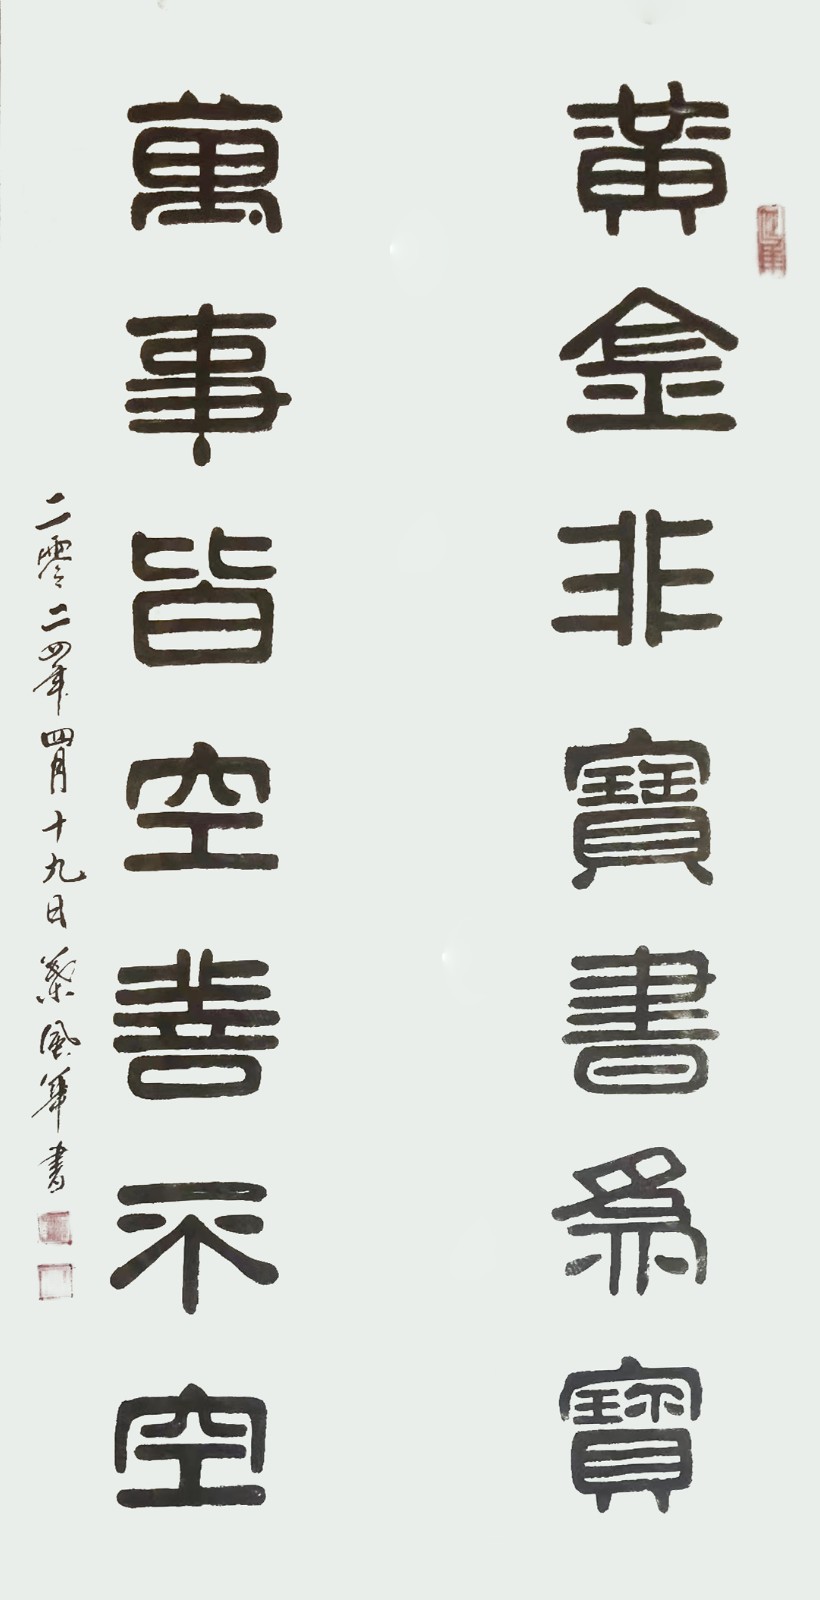 黃金非寶書為寶
萬事皆空善不空
二零二四年四月十九日葉風華書